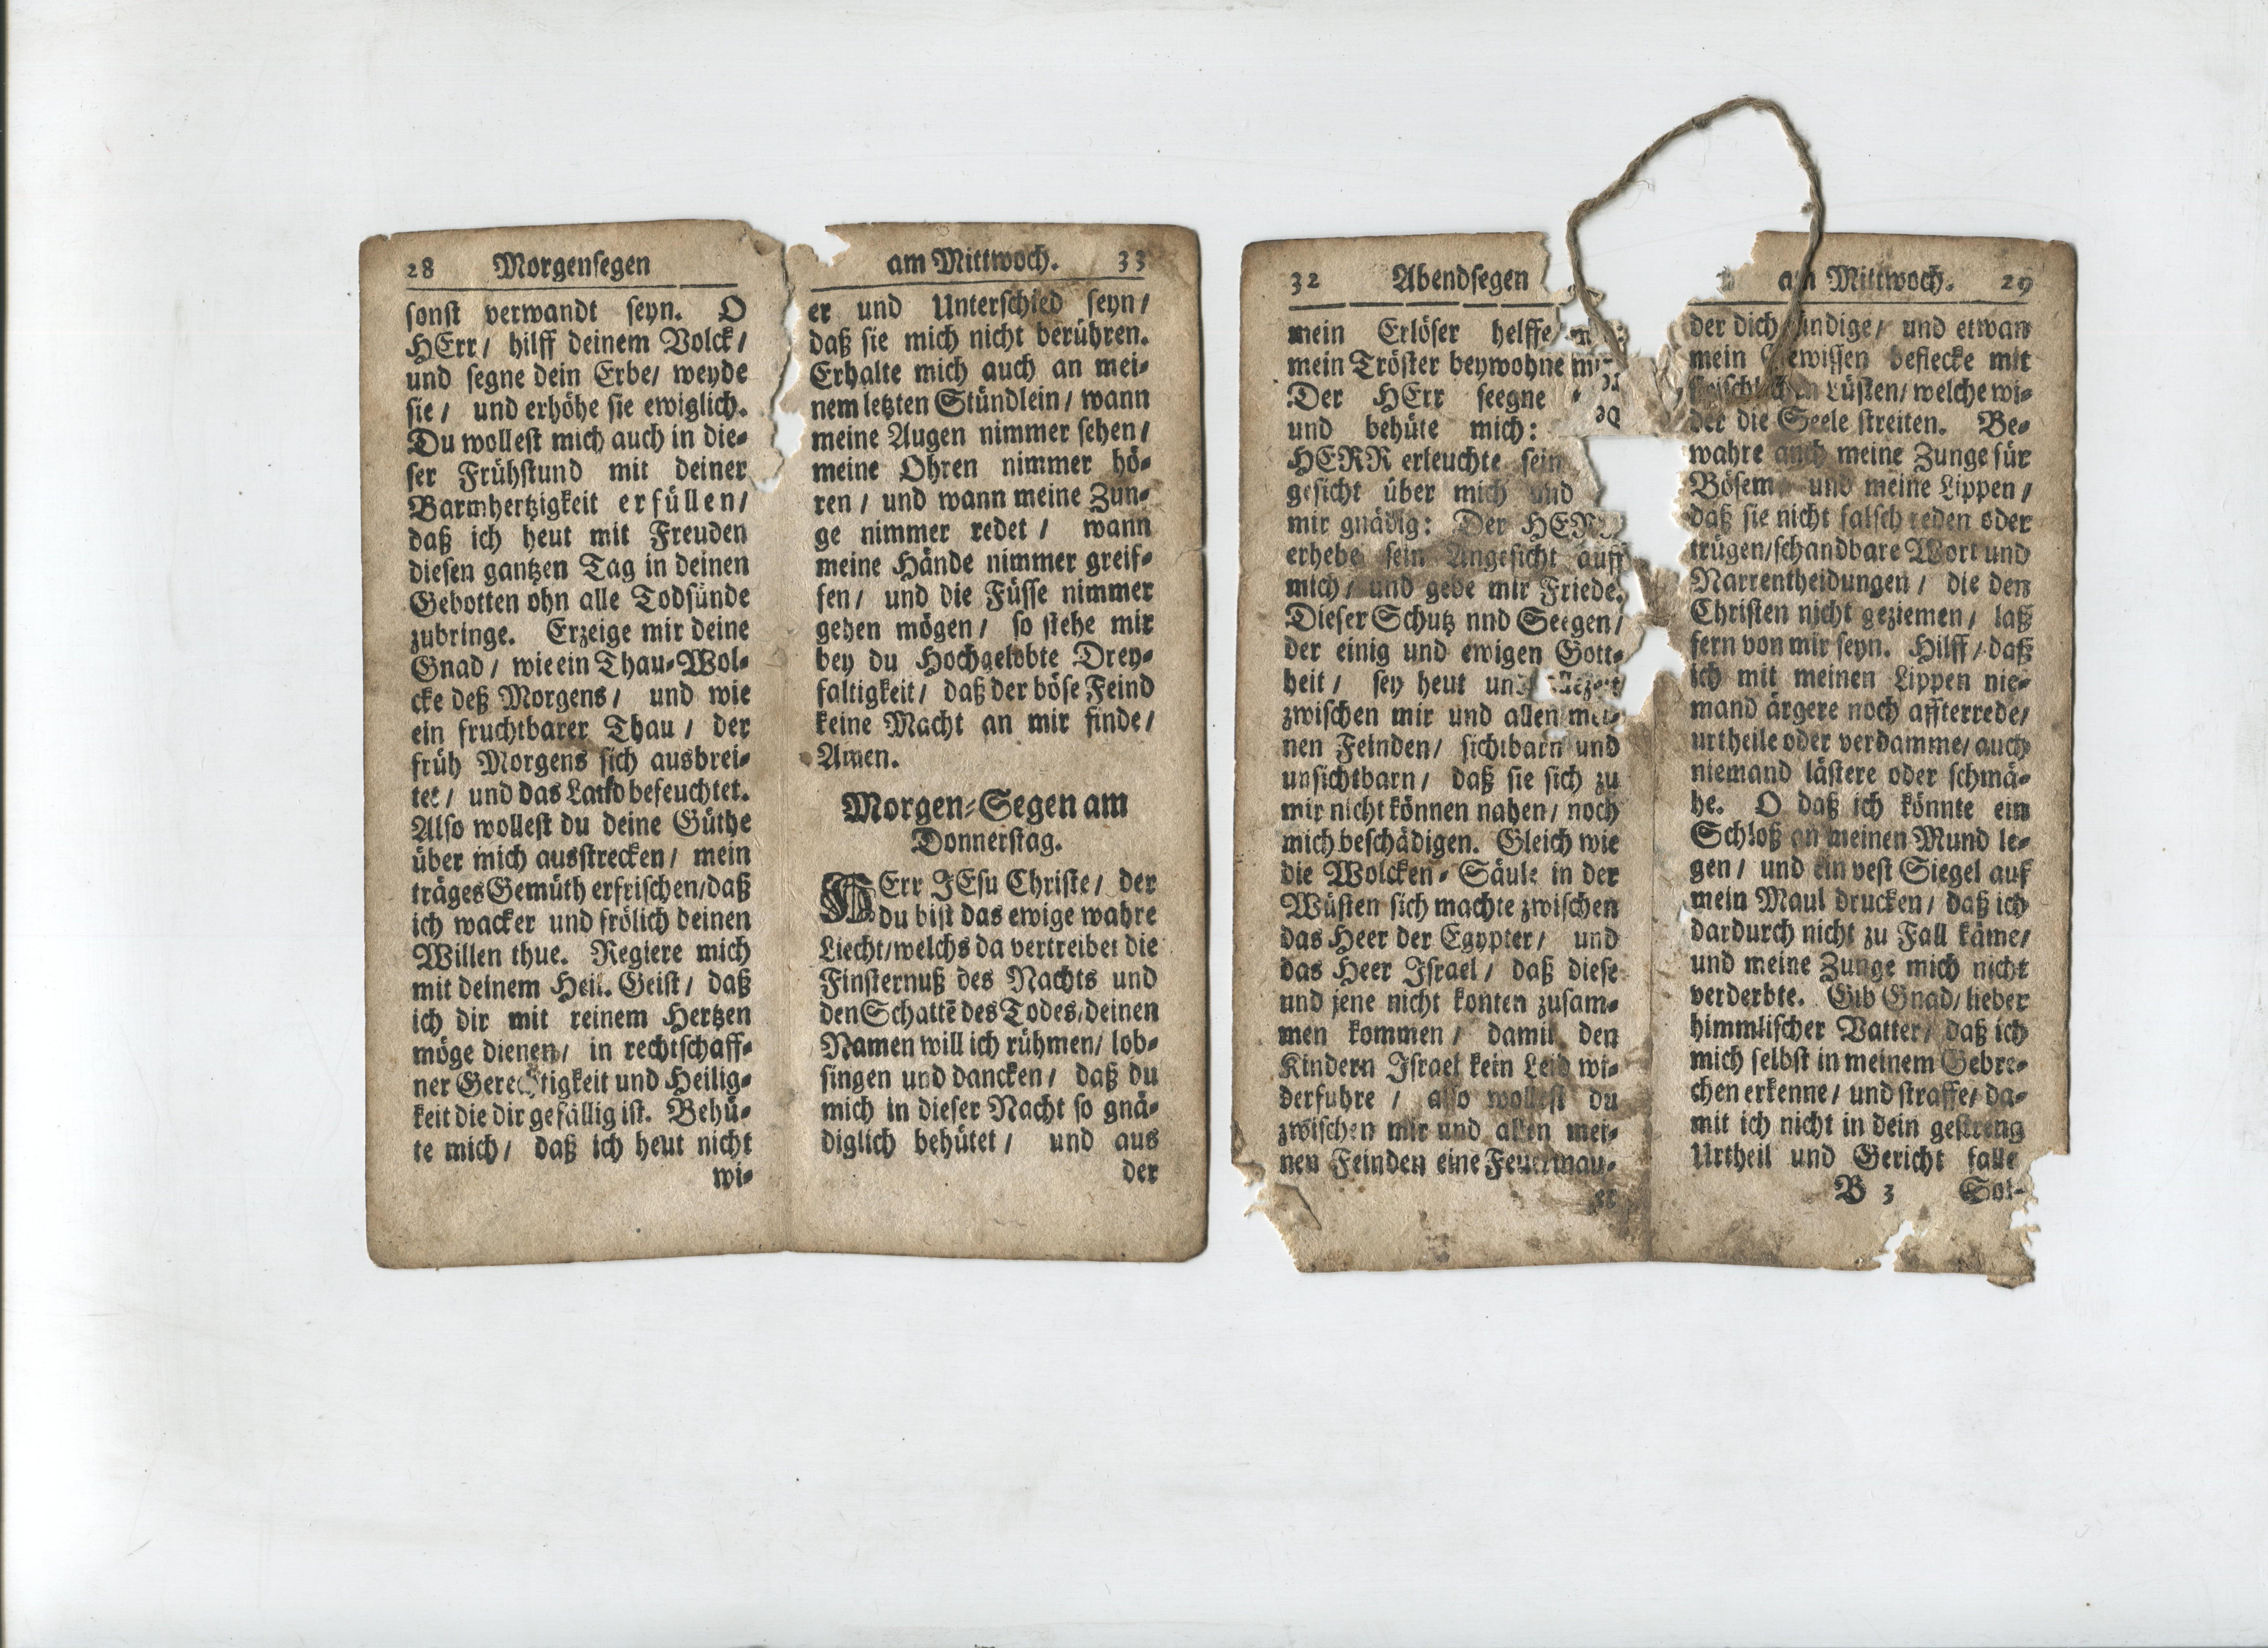 28 Morgensegen
sonst verwandt seyn. O
HErr/ hilff deinem Volck/
und segne dein Erbe/ weyde
sie/ und erhöhe sie ewiglich.
Du wollest mich auch in die⸗
ser Frühstund mit deiner
Barmhertzigkeit erfüllen/
daß ich heut mit Freuden
diesen gantzen Tag in deinen
Gebotten ohn alle Todsünde
zubringe. Erzeige mir deine
Gnad/ wie ein Thau⸗Wol⸗
cke deß Morgens/ und wie
ein fruchtbarer Thau/ der
früh Morgens sich ausbrei⸗
tet/ und das Land befeuchtet.
Also wollest du deine Güthe
über mich ausstrecken/ mein
träges Gemüth erfrischen/daß
ich wacker und frölich deinen
Willen thue. Regiere mich
mit deinem Heil. Geist/ daß
ich dir mit reinem Hertzen
möge dienen/ in rechtschaff⸗
ner Gerechtigkeit und Heilig⸗
keit die dir gefällig ist. Behü⸗
te mich/ daß ich heut nicht
wi⸗
am Mittwoch. 33
er und Unterschied seyn/
daß sie mich nicht berühren.
Erhalte mich auch an mei⸗
nem letzten Stündlein/ wann
meine Augen nimmer sehen/
meine Ohren nimmer hö⸗
ren/ und wann meine Zun⸗
ge nimmer redet/ wann
meine Hände nimmer greif⸗
fen/ und die Füsse nimmer
gehen mögen/ so stehe mir
bey du Hochgelobte Drey⸗
faltigkeit/ daß der böse Feind
keine Macht an mir finde/
Amen.
Morgen⸗Segen am
Donnerstag.
HErr JEsu Christe/ der
du bist das ewige wahre
Liecht/welchs da vertreibet die
Finsternuß des Nachts und
den Schattē des Todes/deinen
Namen will ich rühmen/ lob⸗
singen und dancken/ daß du
mich in dieser Nacht so gnä⸗
diglich behütet/ und aus
der
32 Abendsegen
mein Erlöser helffe
mein Tröster beywohne
Der HErr seegne
und behüte mich:
HERR erleuchte sein
gesicht über mich und
mir gnädig: Der HERR
erhebe sein Angesicht auff
mich/ und gebe mir Friede.
Dieser Schutz nnd Seegen/
der einig und ewigen Gott⸗
heit/ sey heut und allezeit
zwischen mir und allen mei⸗
nen Feinden/ sichtbarn und
unsichtbarn/ daß sie sich zu
mir nicht können nahen/ noch
mich beschädigen. Gleich wie
die Wolcken⸗Säule in der
Wüsten sich machte zwischen
das Heer der Egypter/ und
das Heer Israel/ daß diese
und jene nicht konten zusam⸗
men kommen/ damit den
Kindern Israel kein Leid wi⸗
derfuhre/ also wollest du
zwischen mir und allen mei⸗
nen Feinden eine Feuermau⸗
er
am Mittwoch. 29
der dich / und etwan
mein Gewissen beflecke mit
fleischlichen Lüsten/ welche wi⸗
der die Seele streiten. Be⸗
wahre auch meine Zunge für
Bösem/ und meine Lippen/
daß sie nicht falsch reden oder
trügen/schandbare Wort und
Narrentheidungen/ die den
Christen nicht geziemen/ laß
fern von mir seyn. Hilff/ daß
ich mit meinen Lippen nie⸗
mand ärgere noch affterrede/
urtheile oder verdamme/ auch
niemand lästere oder schmä⸗
he. O daß ich könnte ein
Schloß an meinen Mund le⸗
gen/ und ein vest Siegel auf
mein Maul drucken/ daß ich
dardurch nicht zu Fall käme/
und meine Zunge mich nicht
verderbte. Gib Gnad/ lieber
himmlischer Vatter/ daß ich
mich selbst in meinem Gebre⸗
chen erkenne/ und straffe/ da⸗
mit ich nicht in dein gestreng
Urtheil und Gericht falle
B 3 Sol⸗